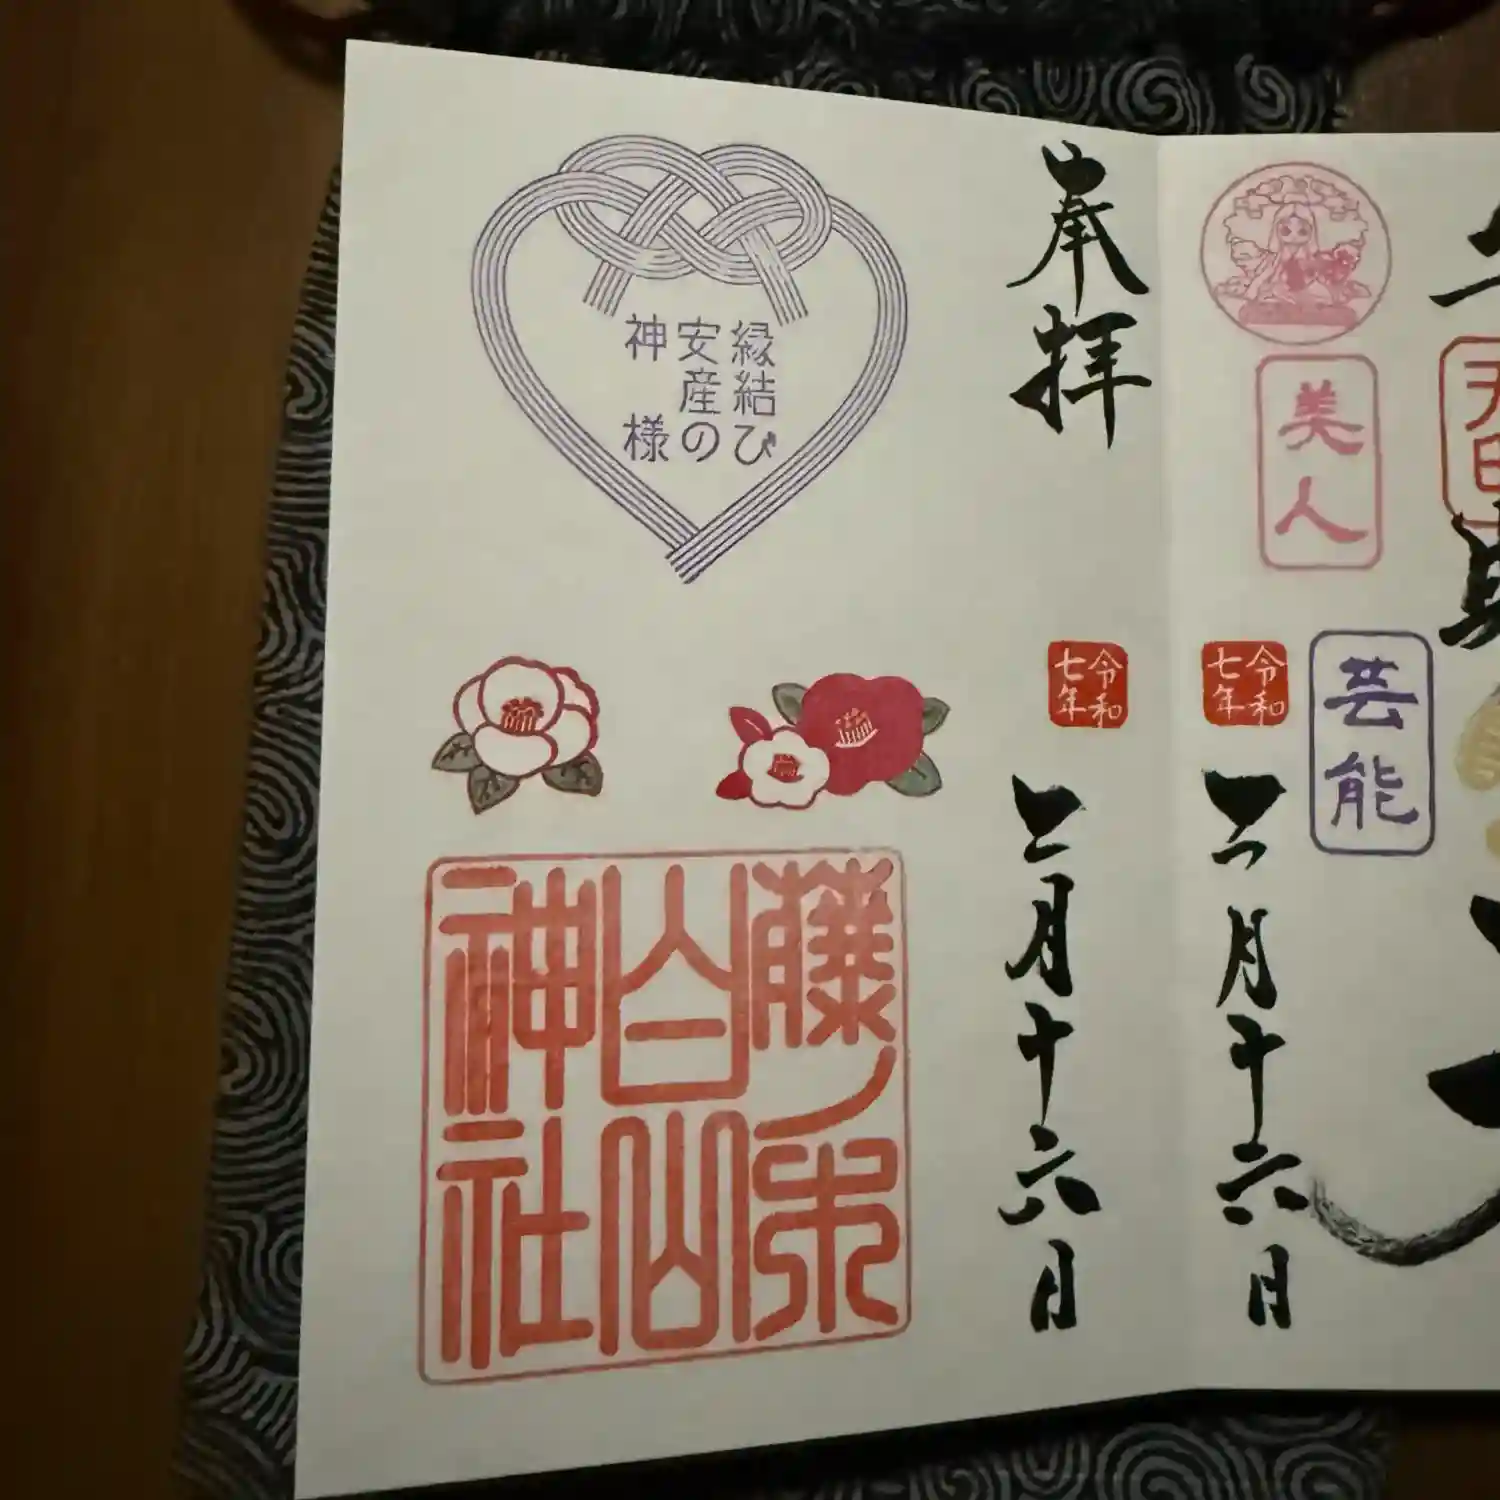 美人
芸能
令和
七年
二月十六日
奉拝
令和
七年
二月十六日
縁結び
安産の
神様
藤
白山
神社